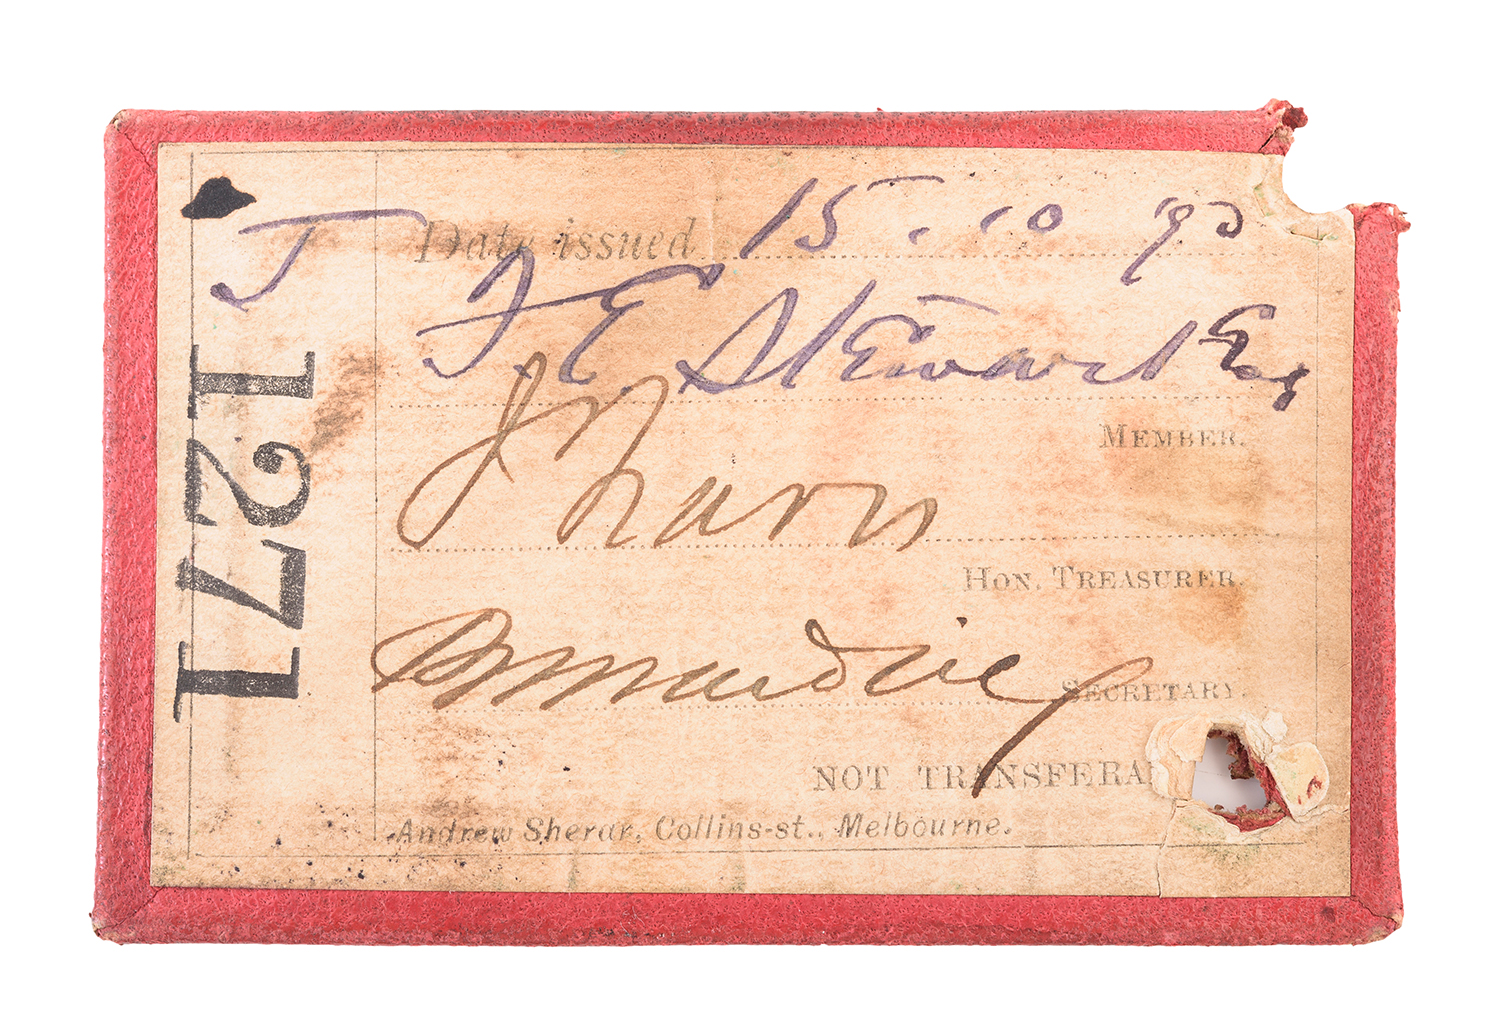 J
1271
Date issued 15.10.90
F. E. Stewart Esq
MEMBER.
HON. TREASURER.
SECRETARY.
NOT TRANSFERA
Andrew Sherar, Collins-st., Melbourne.